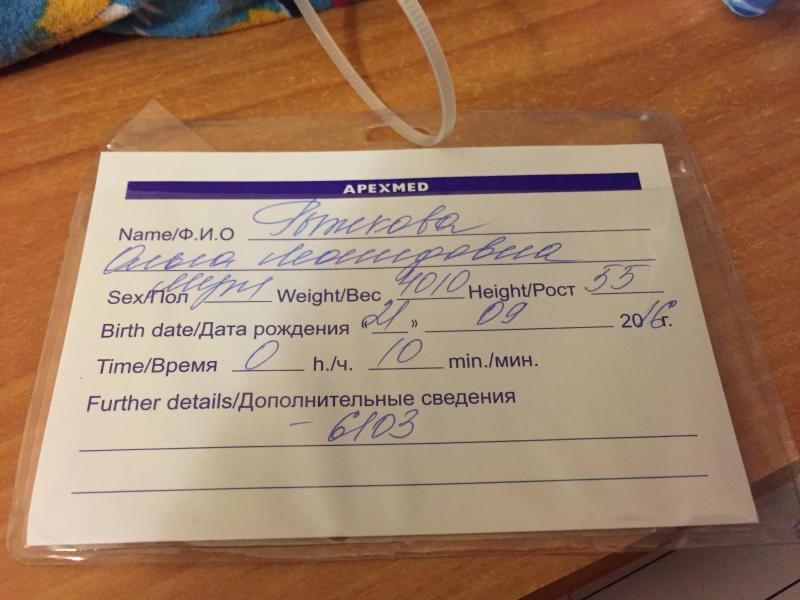 APEXMED
Name/Ф.И.О Рыжкова
Ольга Леонидовна
Sex/Пол муж Weight/Вес 4010 Height/Рост 55
Birth date/Дата рождения «21» 09 2016г.
Time/Время 0 h./ч. 10 min./мин.
Further details/Дополнительные сведения
- 6103